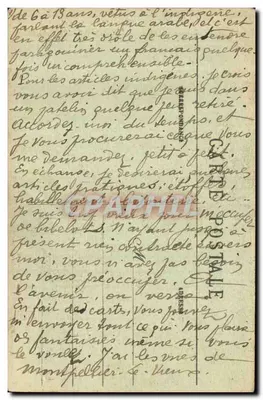 de 6 à 13 ans, vêtus à l'indigène,
parlant la langue arabe, et c'est
en effet très drôle de les entendre
baragouiner un français quelque
fois incompréhensible.
Pour les articles indigènes, je crois
vous avoir dit que j'étais dans
un patelin quelque peu retiré.
Accordez moi du temps, et
je vous procurerai ce que vous
me demandez, petit à petit.
En échange, je désirerai quelques
articles pratiques, étoffes,
Je suis
de bibelots. N'ayant jusqu'à
présent rien envers
moi, vous n'avez pas besoin
de vous préoccuper.
L'avenir, on verra
En fait des cartes, vous pouvez
m'envoyer tout ce qui vous plaira
de fantaisies même si vous
le voulez. J'ai les vues de
Montpellier-le-Vieux.
CARTE POSTALE
CORRESPONDANCE
ADRESSE
CPAPHIL